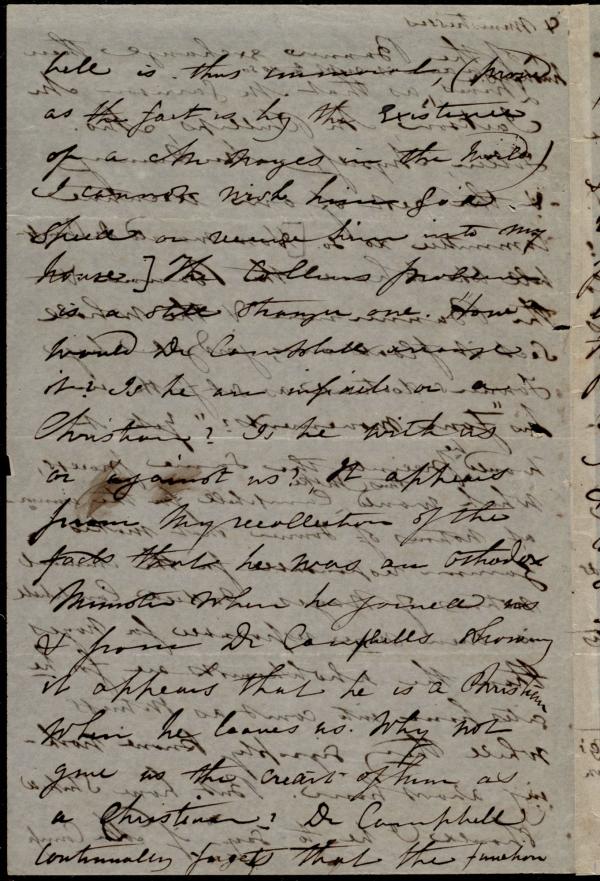 bell is thus immoral, (proved
as the fact is by the existence
of a Mr Noyes in the world)
I cannot wish him god
speed or receive him into my
house.] The Collins problem
is a still stranger one. How
would Dr Campbell
it? Is he an infidel or a
Christian? Is he "with us"
or against us? It appears
from my recollection of the
facts that he was an orthodox
Minister when he joined us
& from Dr Campbells showing
it appears that he is a Christian
when he leaves us. Why not
give us the credit of him as
a Christian? Dr Campbell
continually forgets that the function